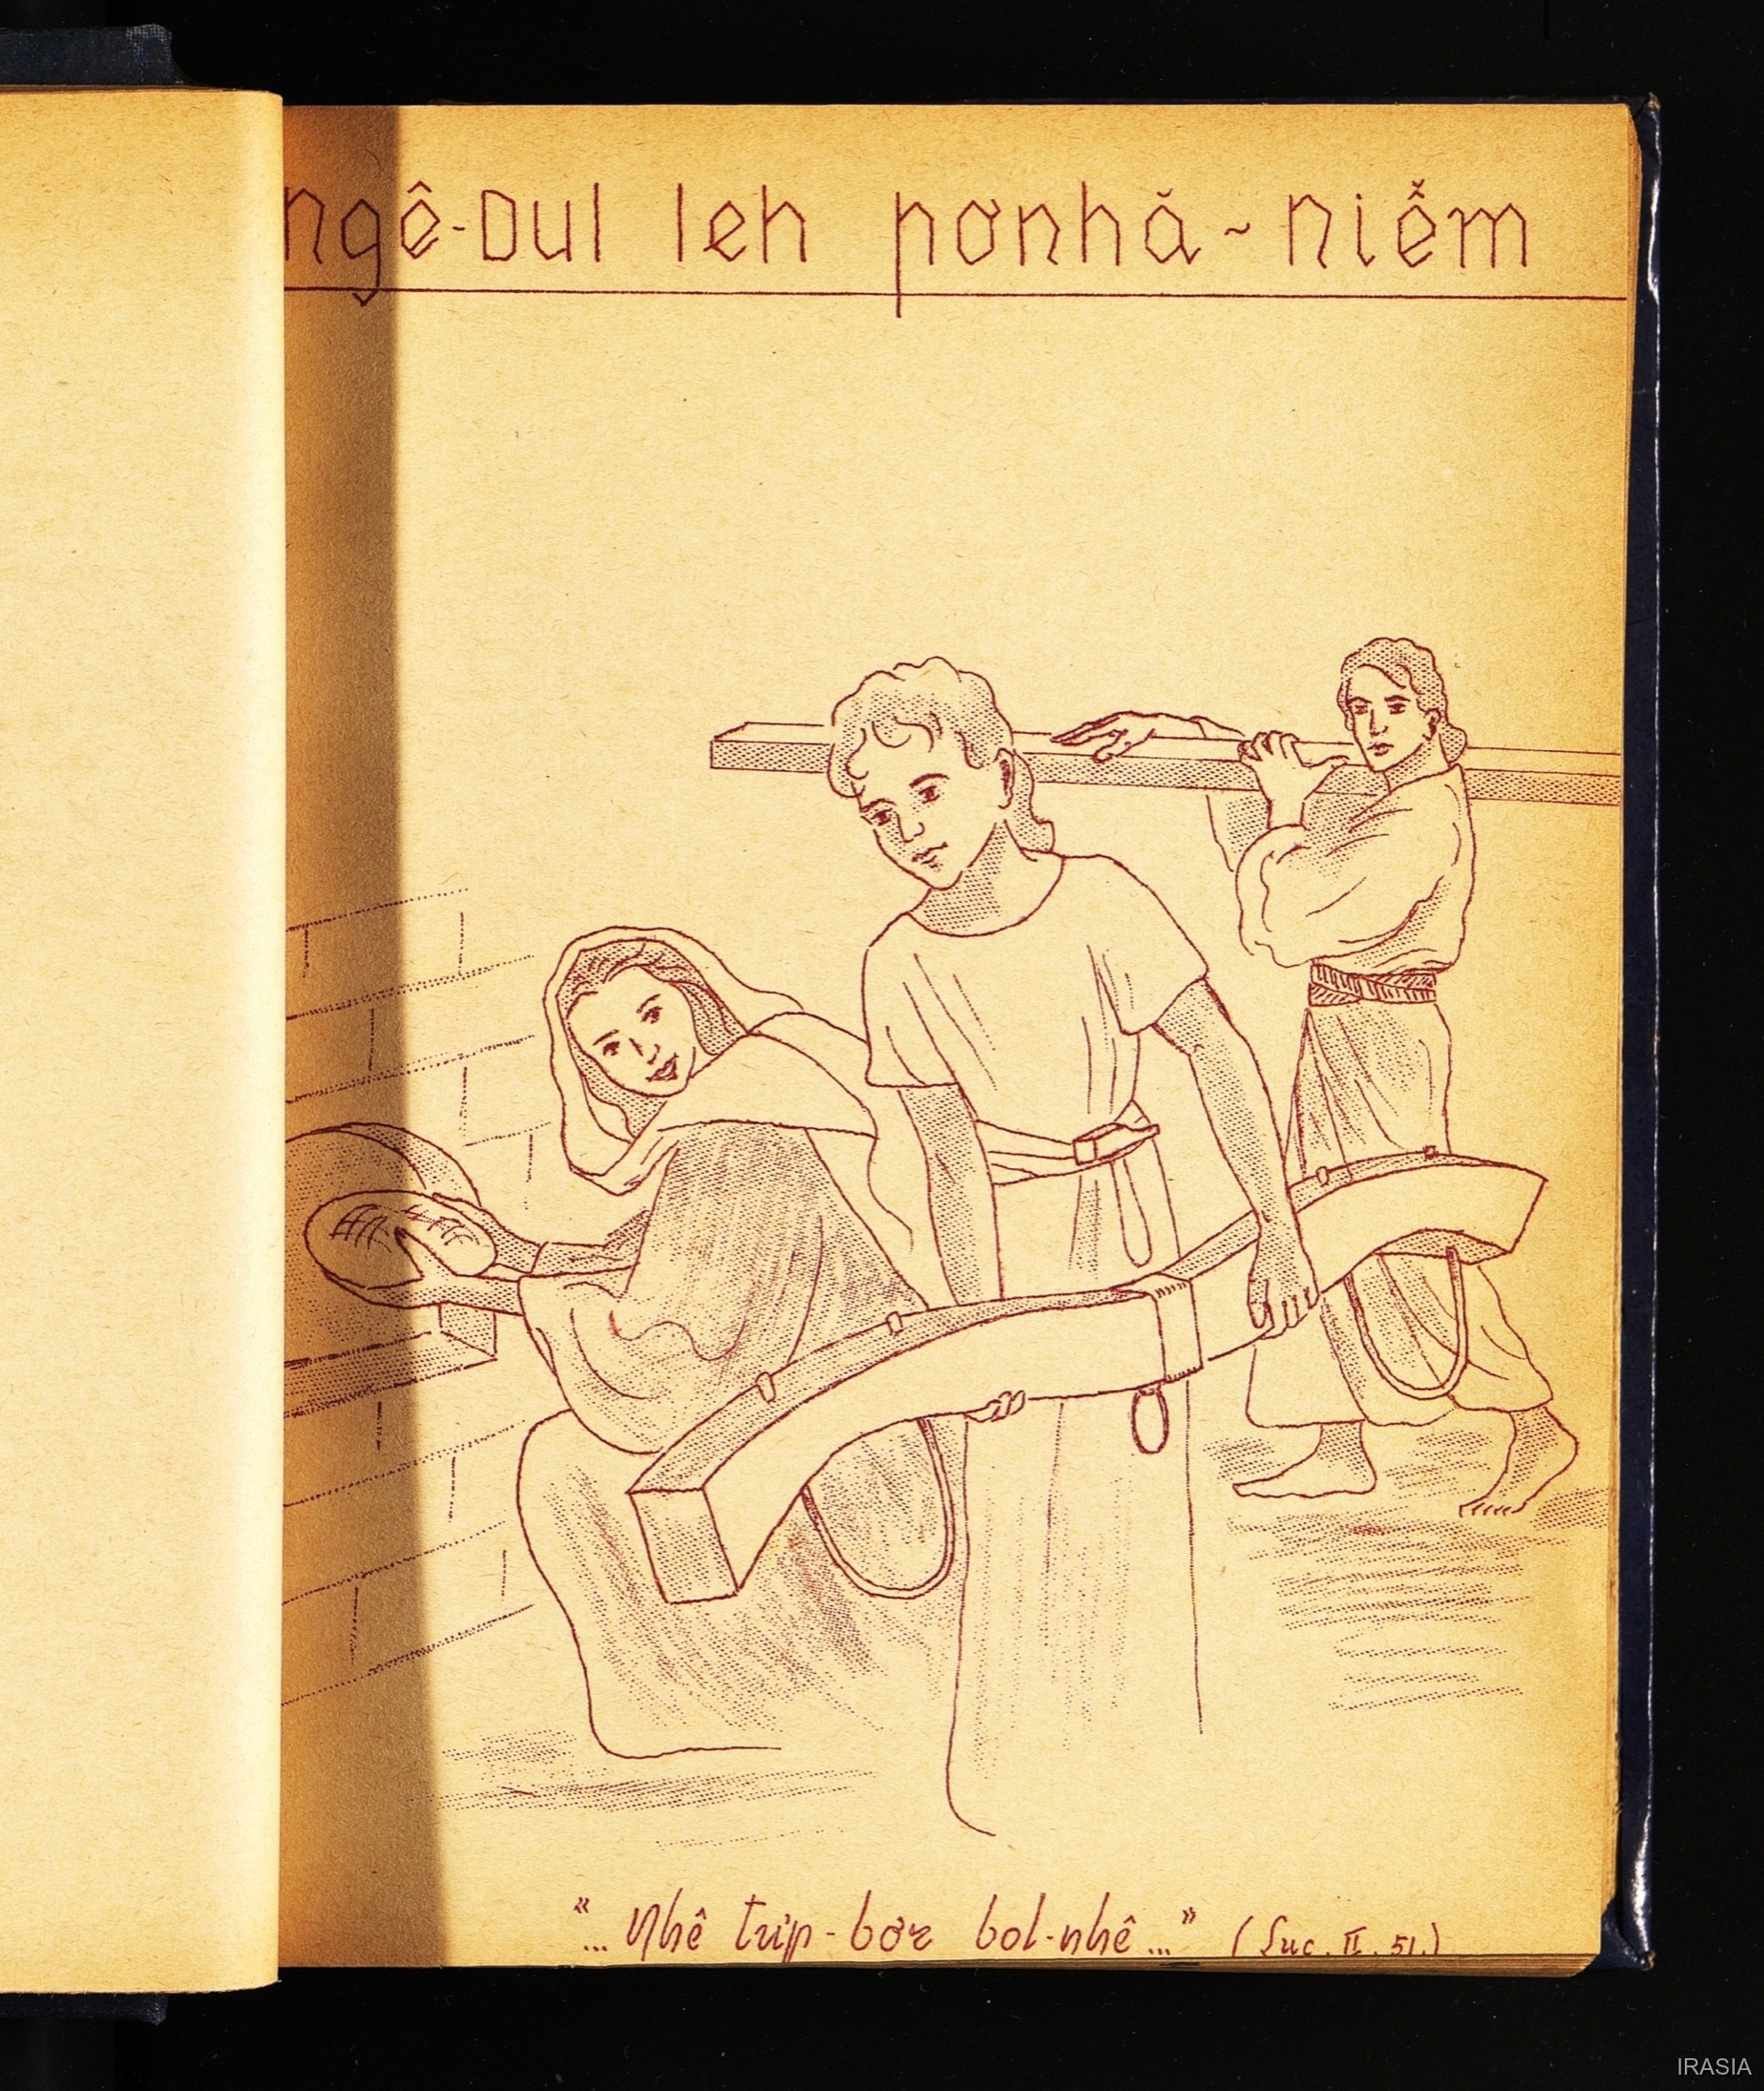 ngê-Dul leh pơnhă ~ niê̆m
"... Nhê tŭp-bơr bol-nhê..." (Luc. II. 51.)
IRASIA